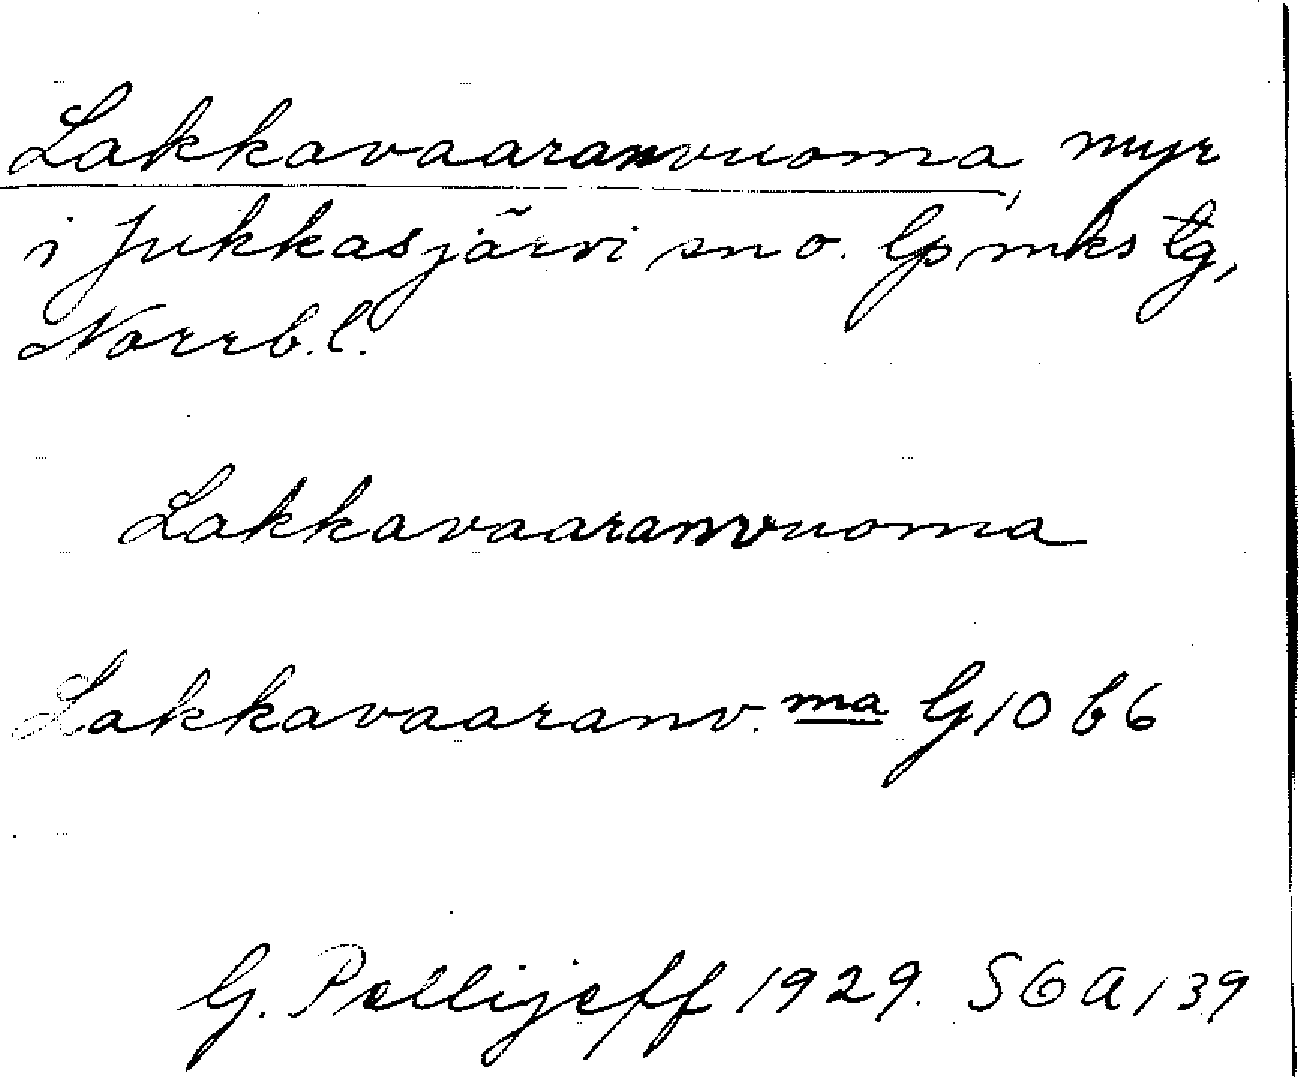 Lakkavaaranvuoma, myr
i Jukkasjärvi sn o. lpmks tg,
Norrb. l.
Lakkavaaranvuoma
Lakkavaaranv. ma G 10 b 6
G. Pellijeff 1929. SGA 139